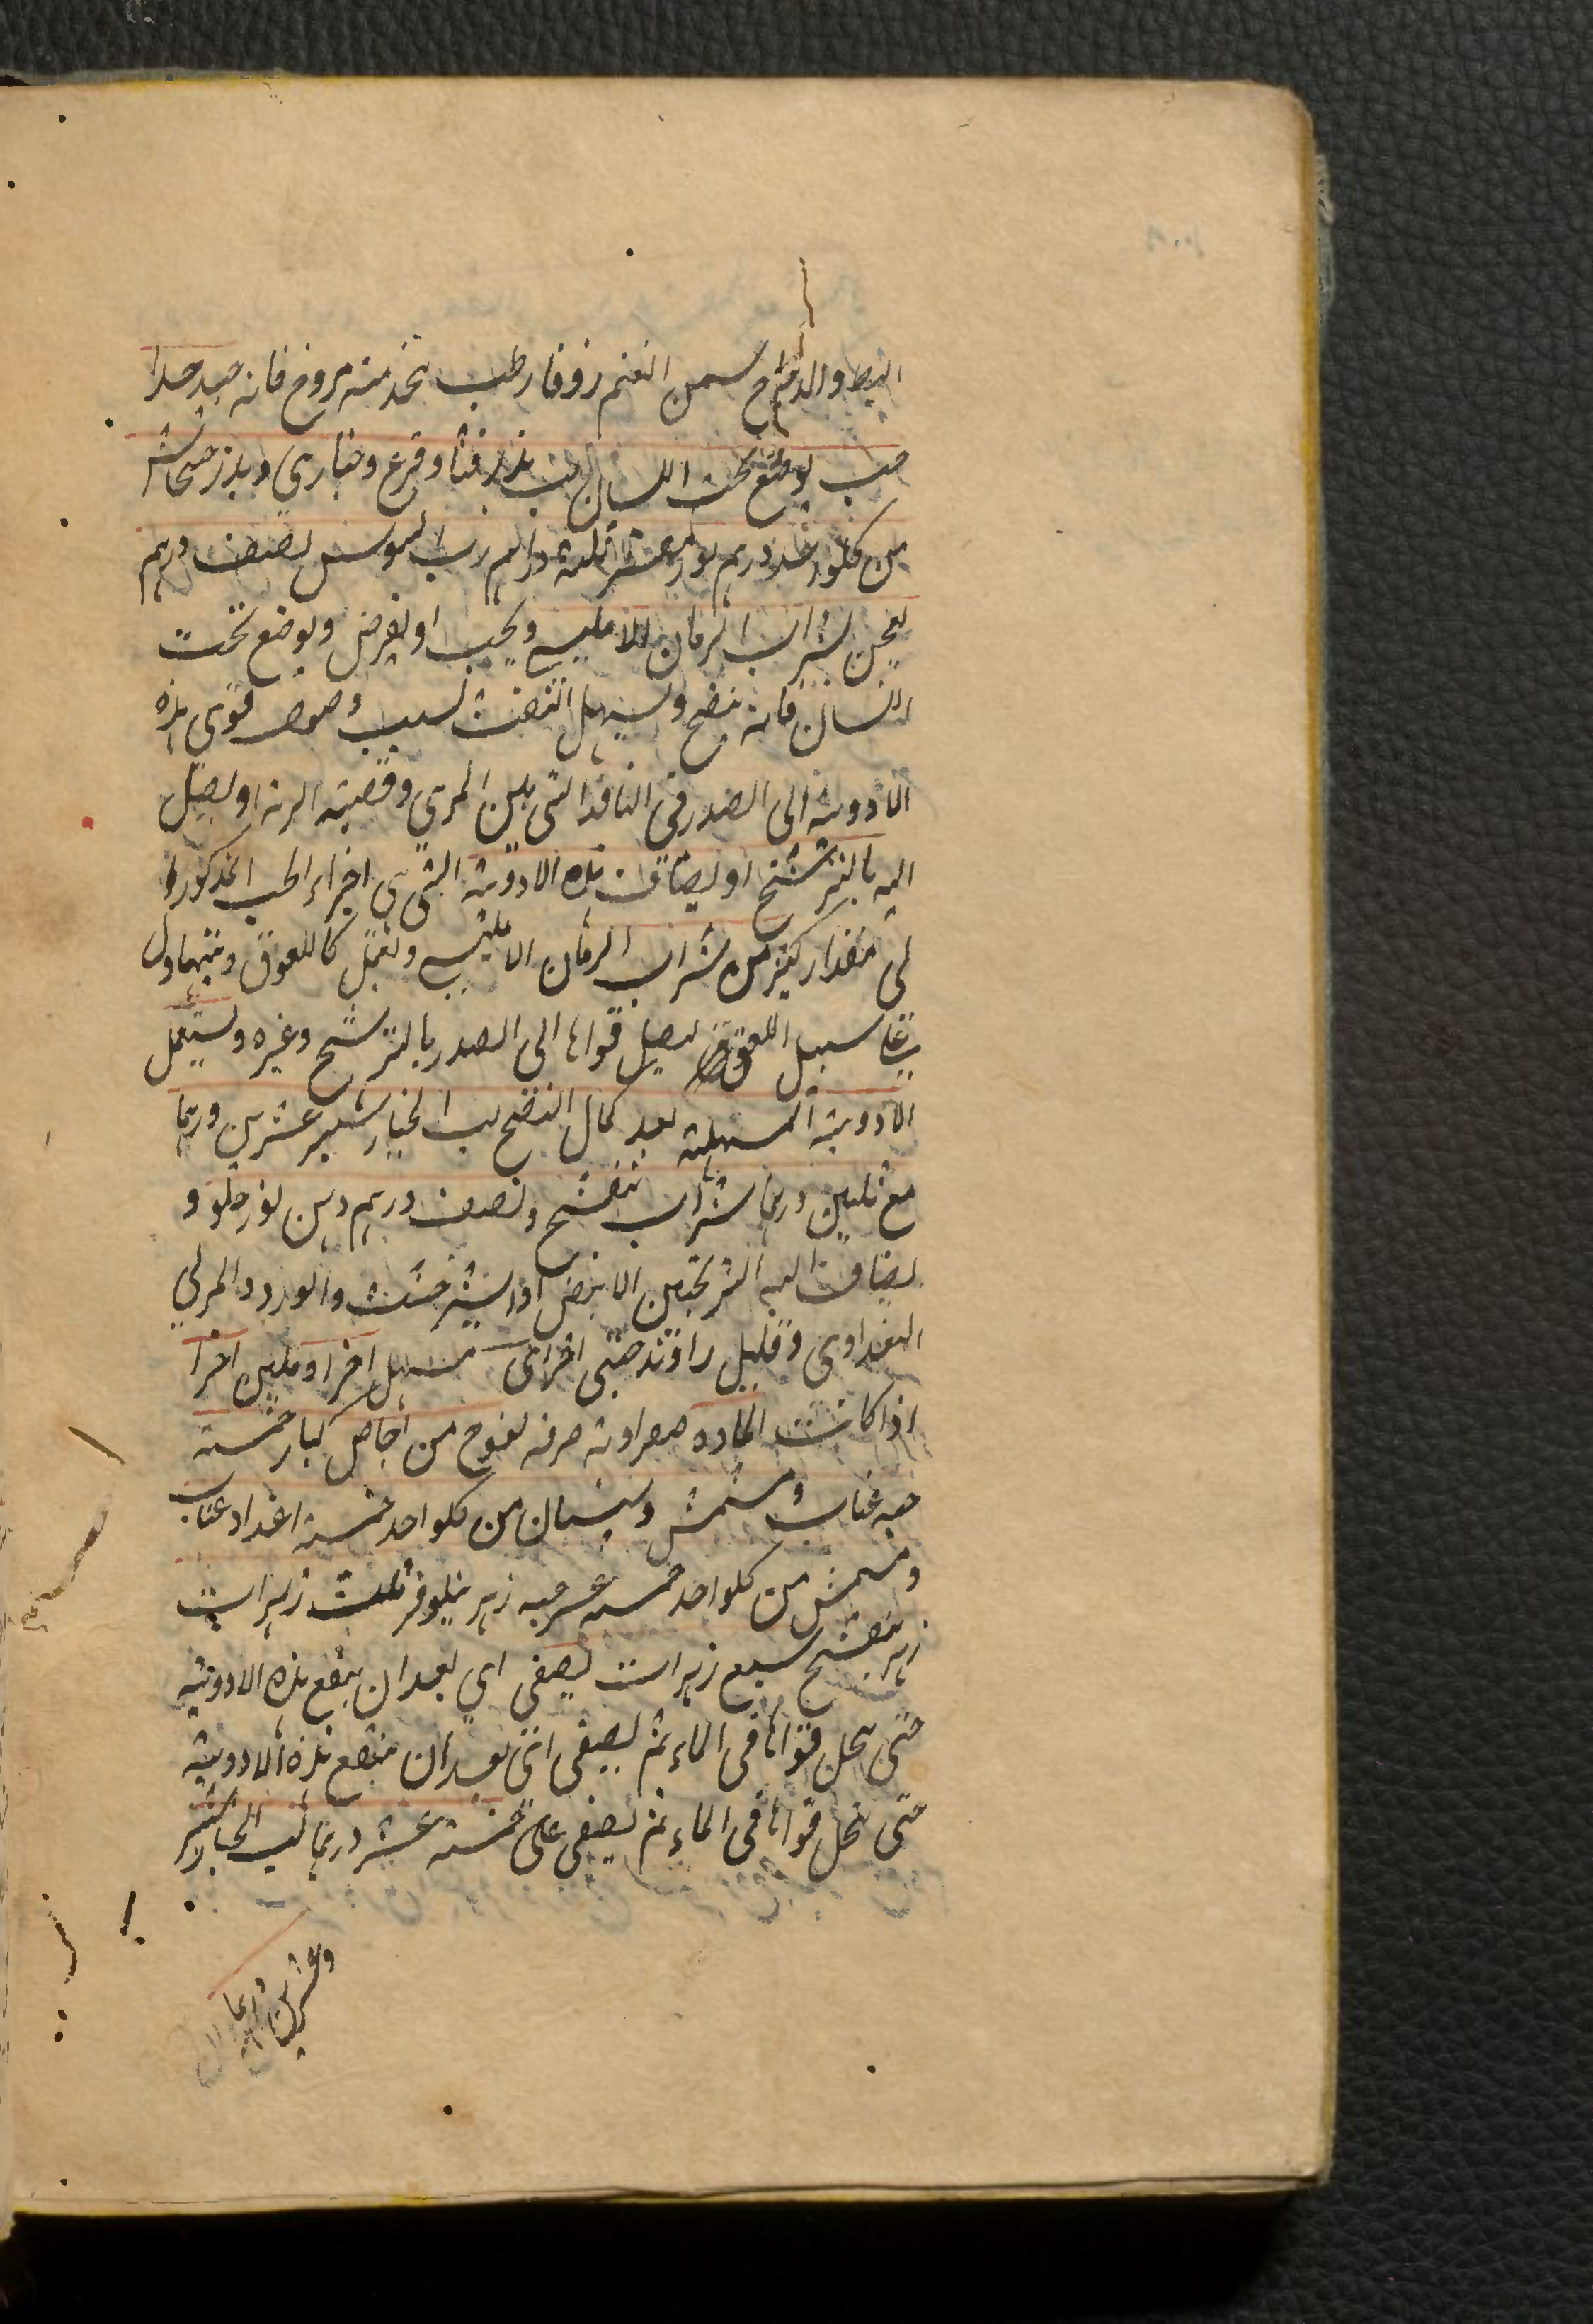 البط والدجاج سمن الغنم زوفا رطب يتخذ منه مروخ فانه جيد جدا
حب يوضع تحت اللسان لب بزر قثا وقرع وخياري وبزر خشخاش
من كلواحد درهم لوز عشر ثلثة دراهم رب السوس نصف درهم
يعجن بشراب الرمان الامليسي ويحبب او يقرص ويوضع تحت
اللسان فانه ينضج ويسهل النفث بسبب وصول قوى هذه
الادوية الى الصدر في المنافذ التي بين المري وقصبة الرية او يصل
اليه بالترشح او يضاف هذه الادوية التي هي اجزاء الحب المذكور
في مقدار كثير من شراب الرمان الامليسي وتعمل كاللعوق ويتناول
على سبيل اللعوق ليصل قواها الى الصدر بالترشح وغيره ويستعمل
الادوية المسهلة بعد كمال النضج لب الخيارشنبر عشرين درهما
مع ثلثين درهما شراب بنفسج ونصف درهم دهن لوز حلو و
يضاف اليه الترنجبين الابيض او الشيرخشت والورد المربي
البغدادي وقليل راوند صيني اخراى مسهل اخر او ملين اخرا
اذا كانت المادة صفراوية صرفة نقوع من اجاص كبار خمسة
حبه عناب ومشمش وسبستان من كلواحد خمسة اعداد عناب
ومشمش من كلواحد خمسه عشر حبه زهر نيلوفر ثلث زهرات
زهر بنفسج سبع زهرات يصفى اي بعد ان ينقع هذه الادوية
حتى يحل قواها في الماء ثم يصفى اى بعد ان ينقع هذه الادوية
حتى تحل قواها في الماء ثم يصفى على خمسة عشر درهما لب الخيارشنبر
وعشرين درهما